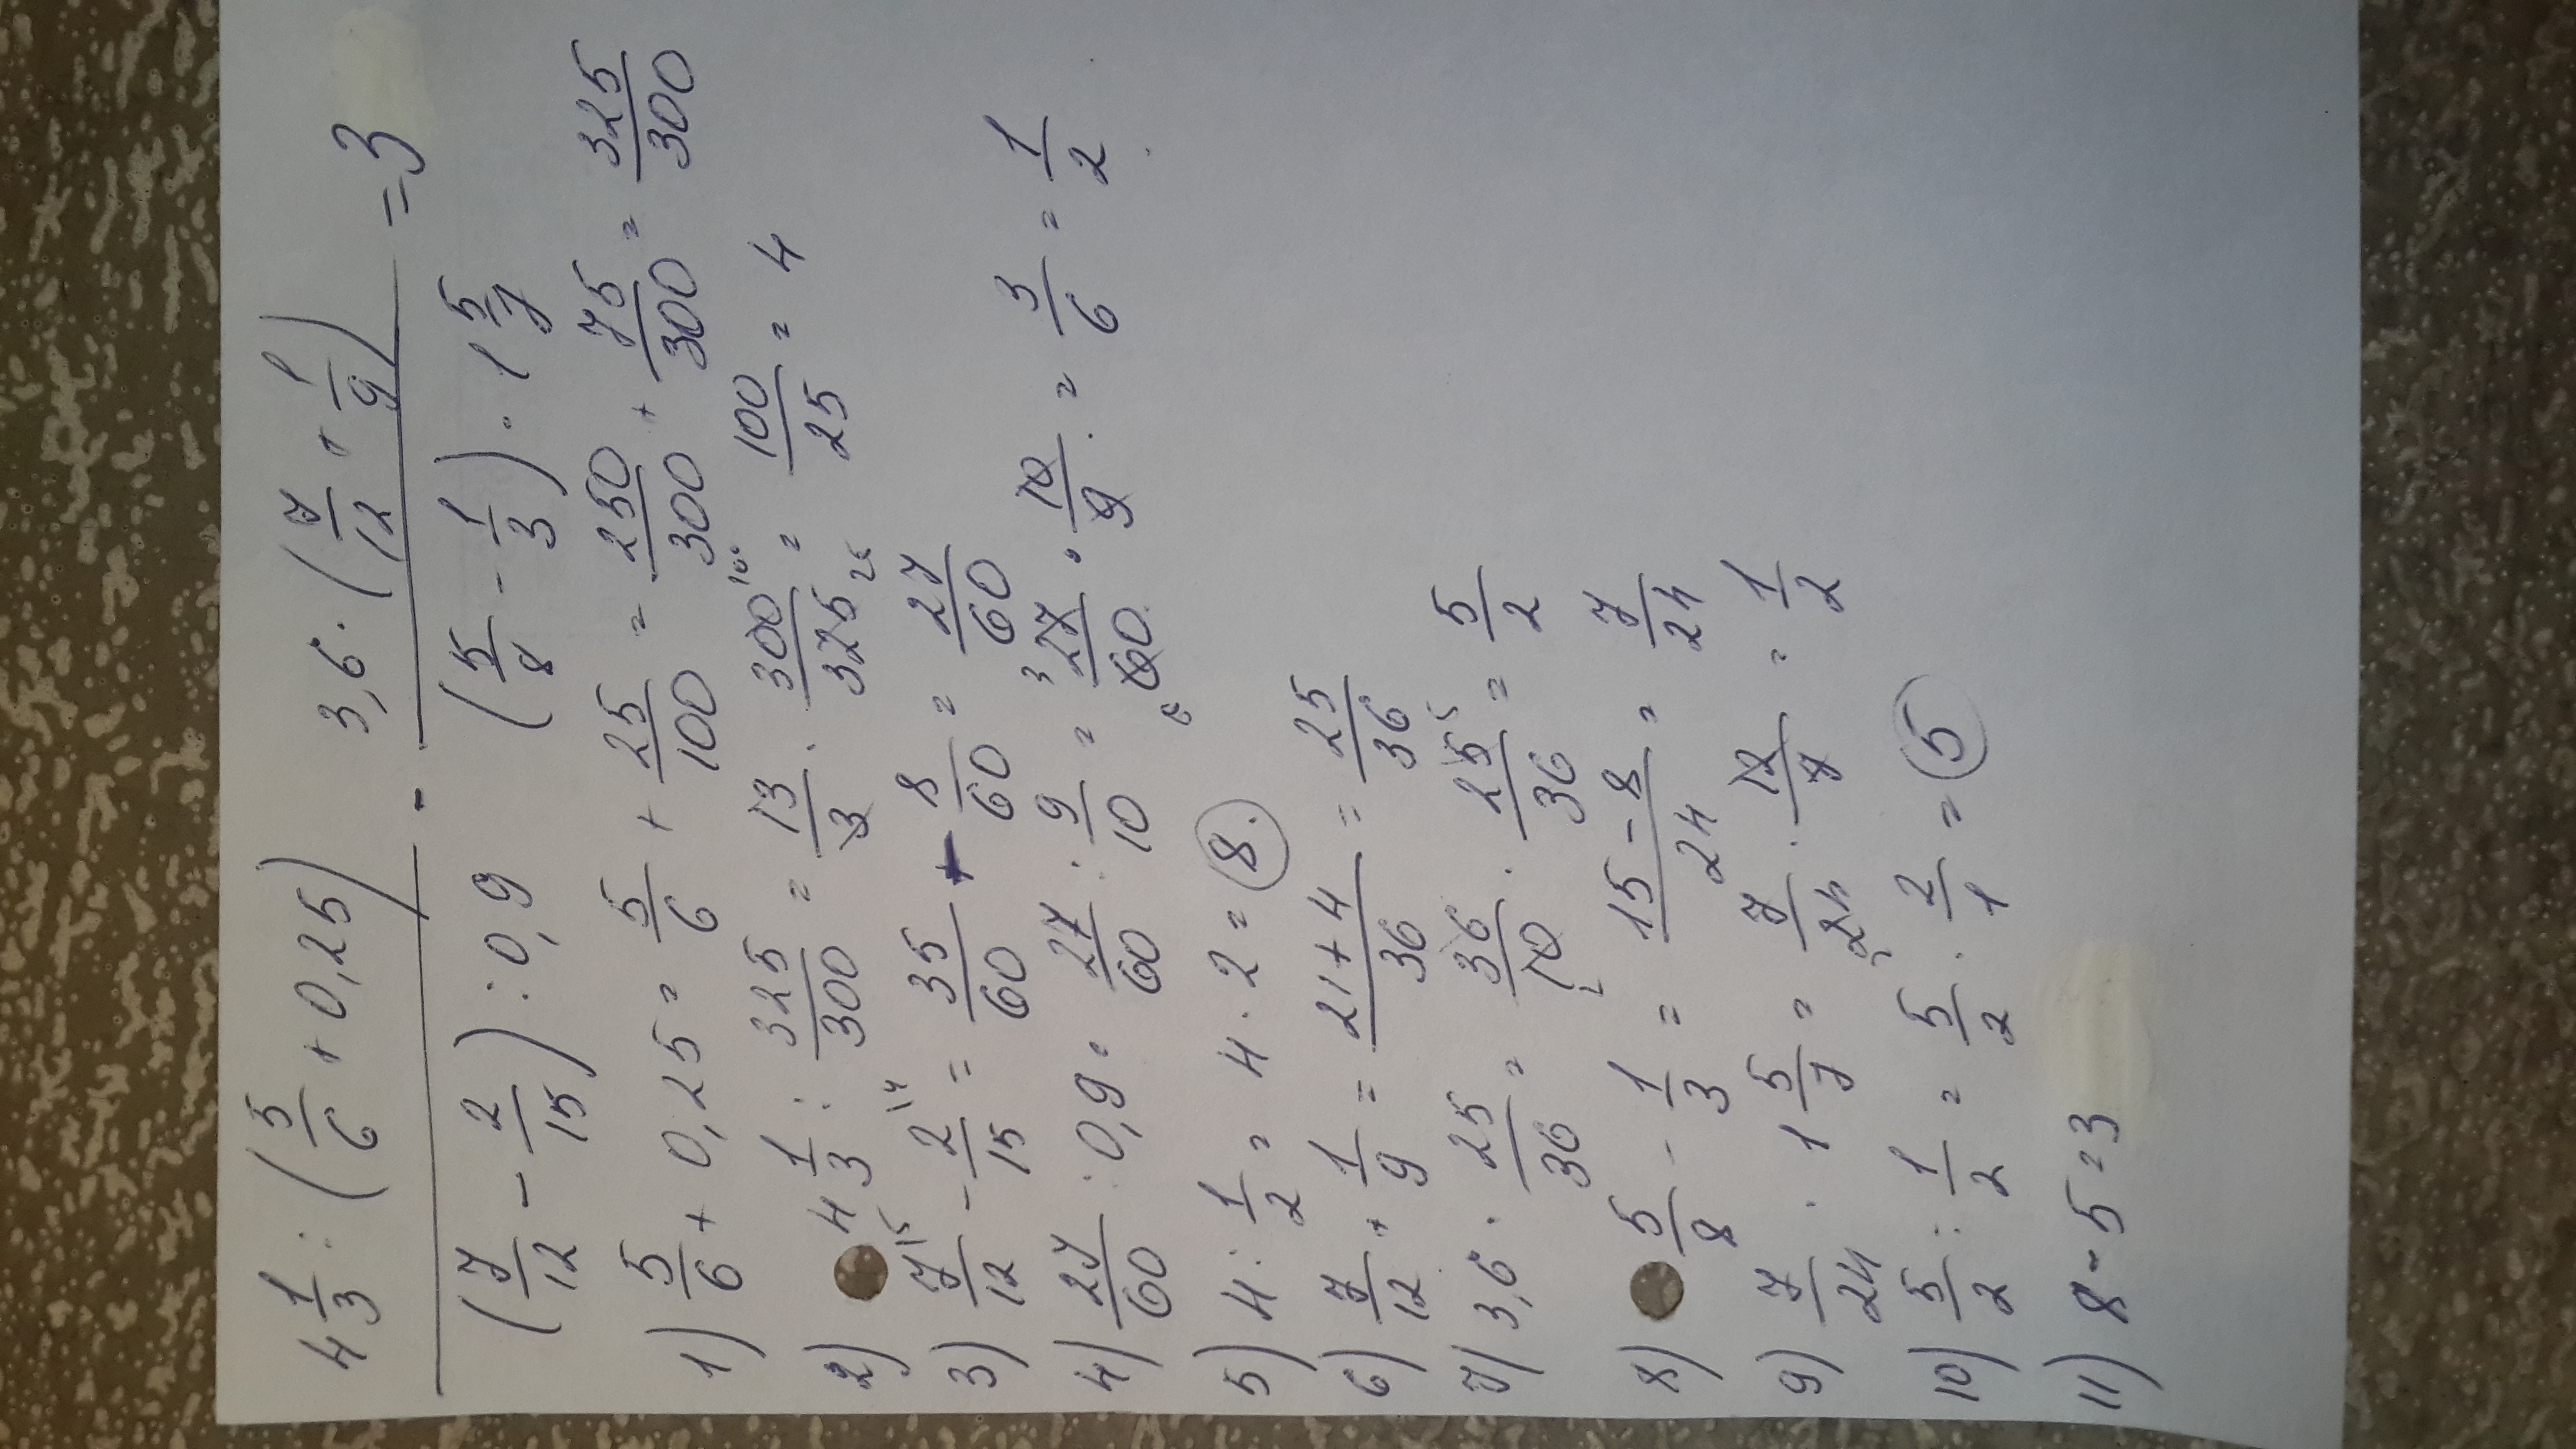 4 1/3 : (5/6 + 0,25) / (7/12 - 2/15) : 0,9 - 3,6 · (7/12 + 1/9) / (5/8 - 1/3) · 1 5/7 = 3
1) 5/6 + 0,25 = 5/6 + 25/100 = 250/300 + 75/300 = 325/300
2) 4 1/3 : 325/300 = 13/3 · 300/325 = 100/25 = 4
3) 7/12 - 2/15 = 35/60 + 8/60 = 27/60
4) 27/60 : 0,9 = 27/60 : 9/10 = 27/60 · 10/9 = 3/6 = 1/2
5) 4 : 1/2 = 4 · 2 = 8.
6) 7/12 + 1/9 = 21+4/36 = 25/36
7) 3,6 · 25/36 = 36/10 · 25/36 = 5/2
8) 5/8 - 1/3 = 15-8/24 = 7/24
9) 7/24 · 1 5/7 = 7/24 · 12/7 = 1/2
10) 5/2 : 1/2 = 5/2 · 2/1 = 5
11) 8 - 5 = 3